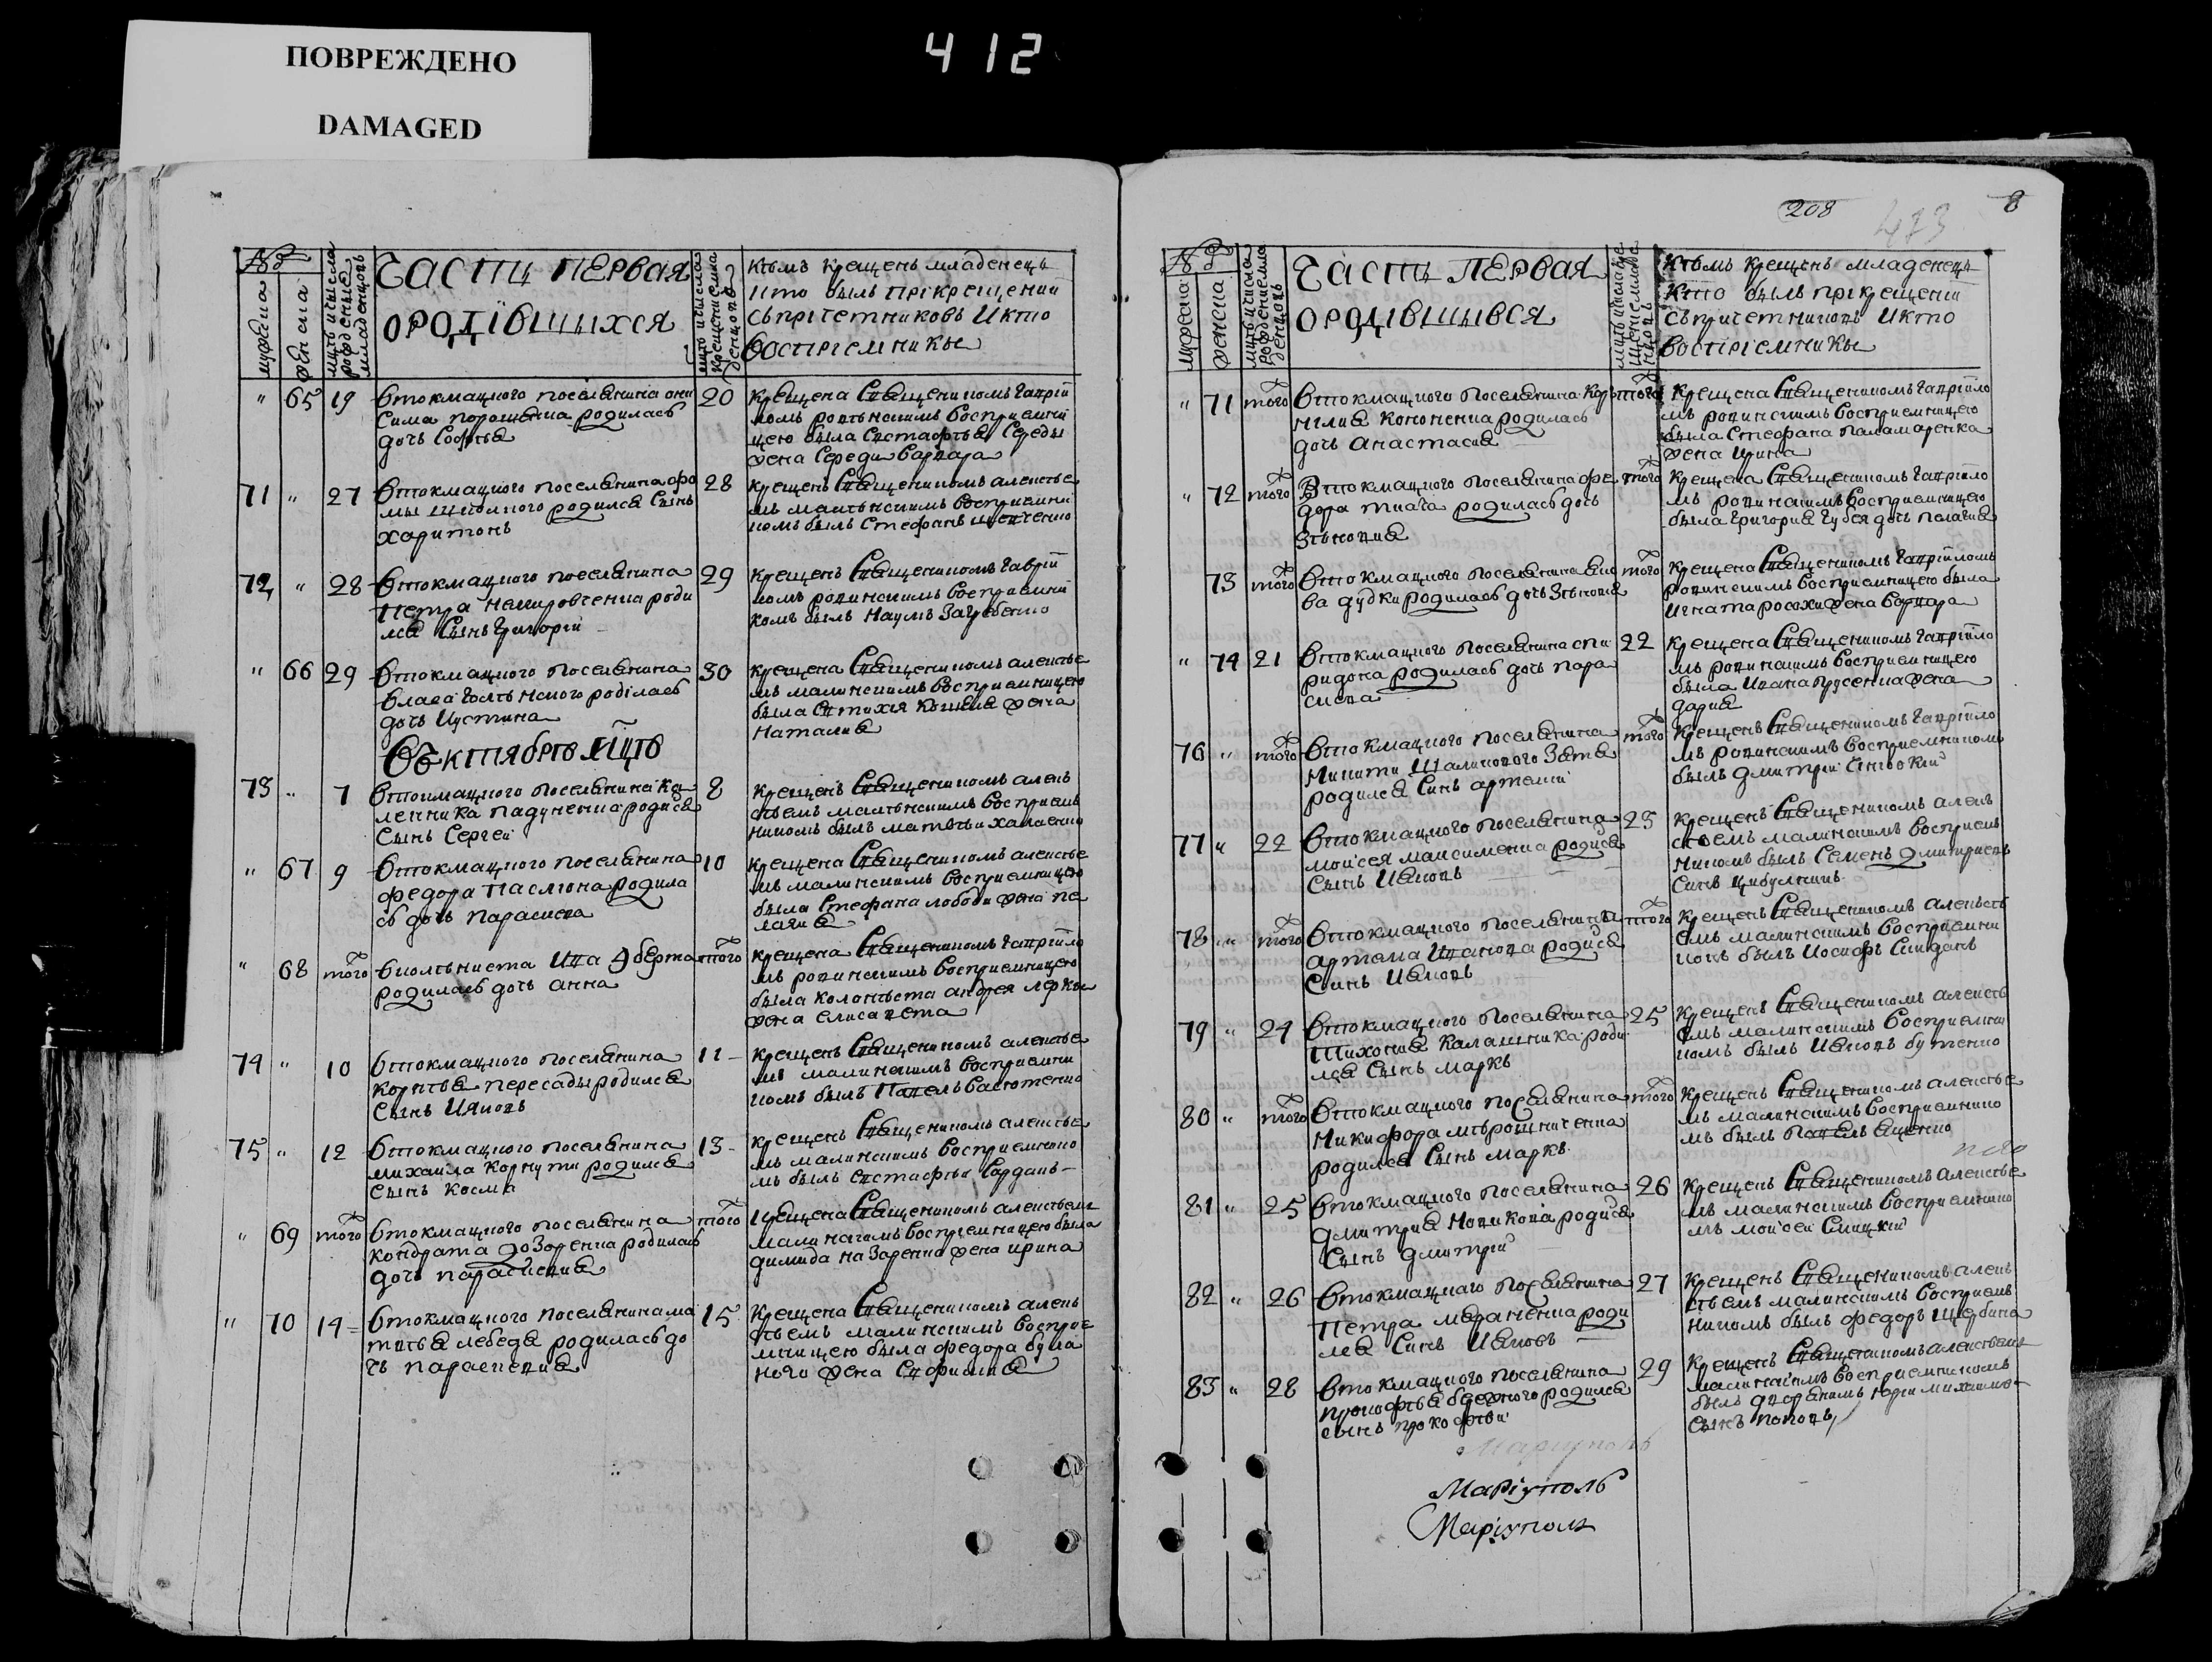 ПОВРЕЖДЕНО
DAMAGED
412
№
мужеска
женска
мць и числа рожденные младенцовъ
Часть первая
ородівшихся
мць и числа крещения младенцовъ
Кѣмъ крещенъ младенецъ
Икто былъ прікрещении
съпрічетниковъ Икто
Воспріемникы
" 65 19 Втокмацкого поселянина они
сима порошенка родилась
дочь Софья
20 Крещена Священикомъ Гавріи
ломъ ровинскимъ Восприемни
цею была Евстафья Середы
жена Середи Варвара
71 " 27 Втокмацкого поселянина фо
мы родился Сынъ
Харитонъ
28 Крещенъ Священикомъ алексѣе
мъ малинскимъ восприемни
комъ былъ Стефанъ шевченко
72 " 28 Втокмацкого поселянина
Петра немировченка роди
лся Сынъ Григорій
29 Крещенъ Священикомъ Гавріи
ломъ ровинскимъ Восприемни
комъ былъ Наумъ Загребенко
" 66 29 Втокмацкого поселянина
власа родилась
дочь Иустина
30 Крещена Священикомъ алексѣе
мъ малинскимъ Восприемницею
была Евтихія жена
Наталия
Октябрь Мцъ
73 " 7 Втокмацкого поселянина Ка
ленника падученка родися
Сынъ Сергей
8 Крещенъ Священикомъ алек
сѣемъ малѣнскимъ Восприем
никомъ былъ матвѣи
" 67 9 Втокмацкого поселянина
федора Паслюна родила
сь дочь Параскева
10 Крещена Священикомъ алексѣе
мъ малинскимъ Восприемницею
была Стефана лободи жена пе
лагия
" 68 того Ива Эберта
родилась дочь анна
того Крещена Священикомъ Гавріило
мъ ровинскимъ Восприемницею
была колониста андрея
жена елисавета
74 " 10 Втокмацкого поселянина
Корнѣя пересады родился
Сынъ Ияковъ
11 Крещенъ Священикомъ алексѣе
мъ малинскимъ Восприемни
комъ былъ Павелъ Васютенко
75 " 12 Втокмацкого поселянина
михаила Корнути родился
Сынъ Косма
13 Крещенъ Священикомъ алексѣе
мъ малинскимъ Восприемнико
мъ былъ Евстафѣи
" 69 того Втокмацкого поселянина
Кондрата доЗоренка родилась
дочь параскевия
того Крещена Священикомъ алексѣемъ
малинскимъ Воспріемницею была
димида наЗаренка жена ирина
" 70 14 Втокмацкого поселянина ма
твѣя лебедя родилась до
чь параскевия
15 Крещена Священикомъ алек
сѣемъ малинскимъ Восприе
мницею была федора була
ного жена Евфимия
208
473
8
№
мужеска
женска
мць и числа рожденния младенцовъ
Часть первая
ородівшывся
Кѣмъ крещенъ младенецъ
Кто былъ прікрещени
съпричетниковъ Икто
Воспріемникы
" 71 того Втокмацкого поселянина Кор
нилия Кононенка родилась
дочь анастасия
того Крещена Священикомъ Гавріило
мъ ровинскимъ Восприемницею
была Стефана Паламаренка
жена Ирина
" 72 того Втокмацкого поселянина фе
дора ткача родилась дочь
Зѣновия
того Крещена Священикомъ Гавріило
мъ ровинскимъ Восприемницею
была Григория Губся дочь пелагия
73 того Втокмацкого поселянина Яко
ва дудки родилась дочь Зѣновия
того Крещена Священикомъ Гавріиломъ
ровинскимъ Восприемницею была
Игната росохи жена Варвара
" 74 21 Втокмацкого поселянина спи
ридона родилась дочь пара
скева
22 Крещена Священикомъ Гавріило
мъ ровинскимъ Восприемницею
была Ивана брусенка жена
дария
76 " того Втокмацкого поселянина
Микити Шалинового Зятя
родился Синъ артемий
того Крещенъ Священикомъ Гавріило
мъ ровинскимъ Восприемникомъ
былъ дмитрій
77 " 22 Втокмацкого поселянина
моисея максименка родися
Сынъ Иаковъ
23 Крещенъ Священикомъ алек
сѣемъ малинскимъ Восприем
никомъ былъ Семенъ дмитриевъ
Синъ цибулникъ
78 " того Втокмацкого поселянина
артема Иванова родися
Синъ Иаковъ
того Крещенъ Священикомъ алексѣ
емъ малинскимъ Восприемни
комъ былъ Иосифъ Скиданъ
79 " 24 Втокмацкого поселянина
Тихония Калашника роди
лся Сынъ маркъ
25 Крещенъ Священикомъ алексѣ
емъ малинскимъ Восприемни
комъ былъ Иаковъ бутенко
80 " того Втокмацкого поселянина
Никифора мѣрошниченка
родился Сынъ маркъ
того Крещенъ Священикомъ алексѣе
мъ малинскимъ Восприемнико
мъ былъ Павелъ Яценко
81 " 25 Втокмацкого поселянина
дмитрия Новикова родися
Сынъ дмитрій
26 Крещенъ Священикомъ алексѣе
мъ малинскимъ Восприемнико
мъ моисей Слицкій
82 " 26 Втокмацкаго поселянина
Петра мараненка роди
лся Синъ Иаковъ
27 Крещенъ Священикомъ алек
сѣемъ малинскимъ Восприем
никомъ былъ федоръ щербина
83 " 28 Втокмацкого поселянина
прокофья бѣдного родился
сынъ прокофѣи
29 Крещенъ Священикомъ алексѣемъ
малинскимъ Восприемникомъ
былъ дворанинъ юрии
Сынъ поповъ
Маріуполь
Маріуполь
Маріуполь